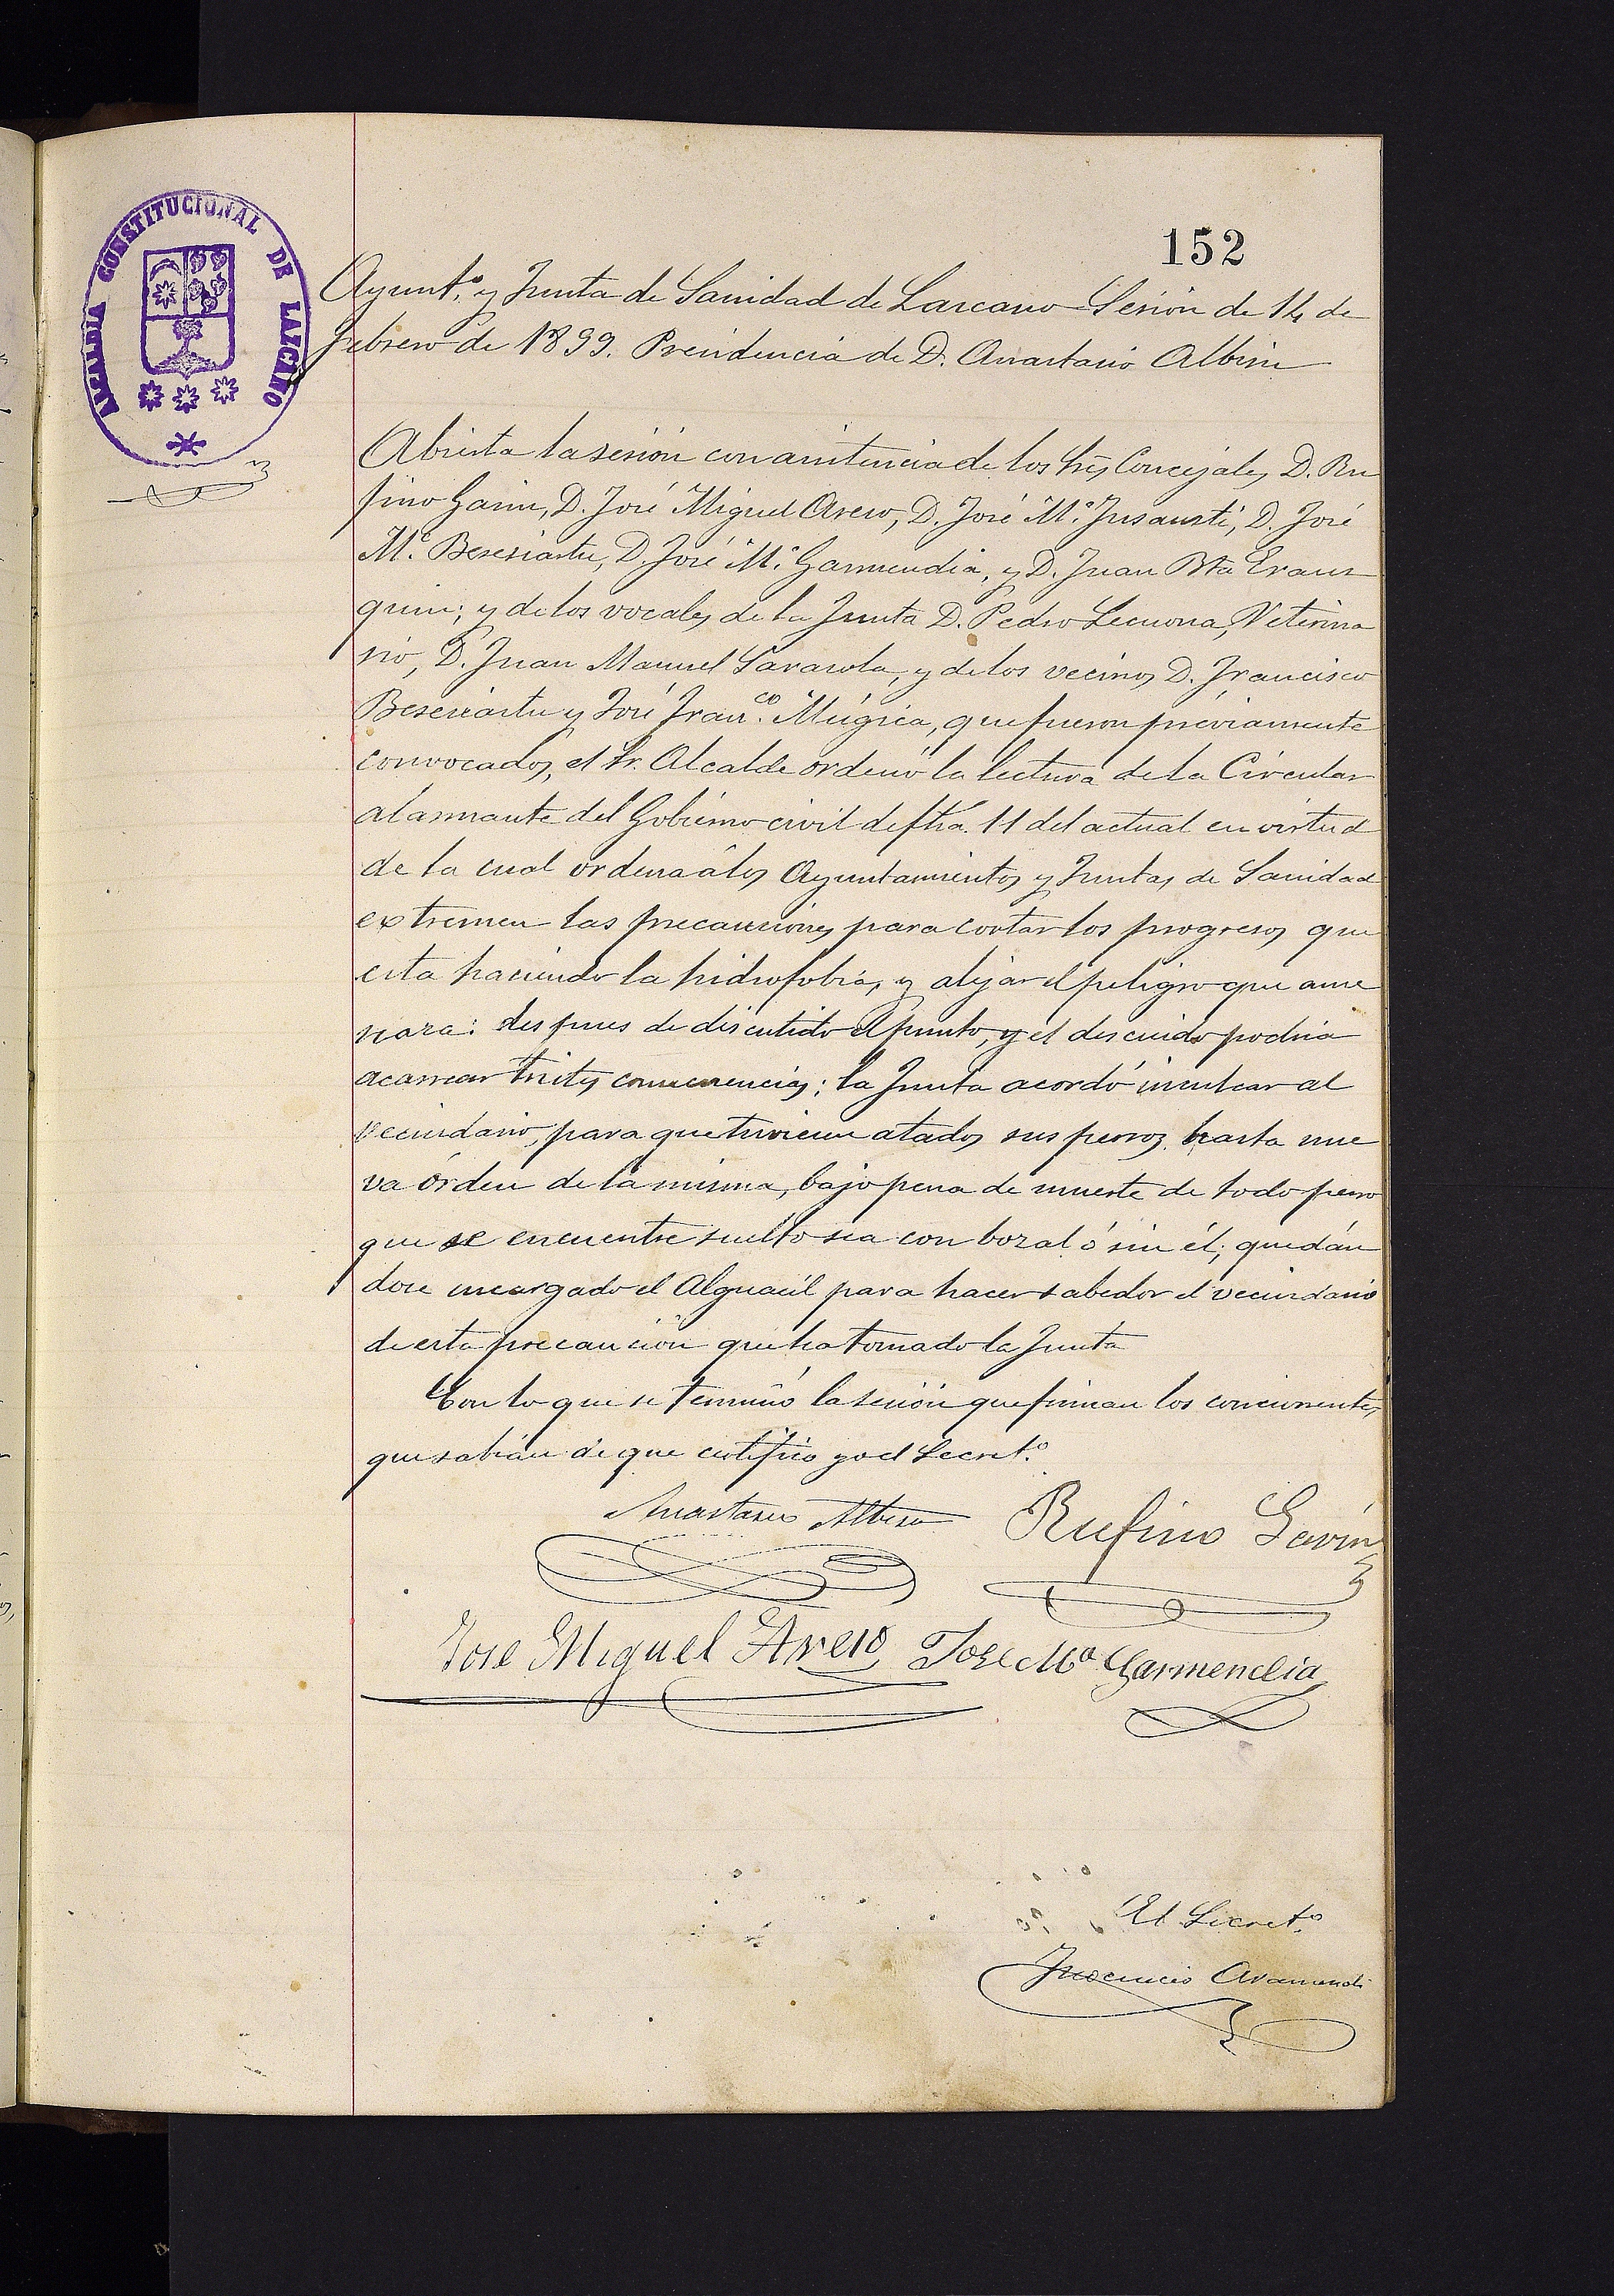 152
ALCALDIA CONSTITUCIONAL DE LAZCANO
Ayunt.º y Junta de Sanidad de Lazcano Sesión de 14 de
Febrero de 1899. Presidencia de D. Anastasio Albisu
Abierta la sesión con asistencia de los Srs Concejales D. Ru
fino Garin, D. José Miguel Areso, D. José M.ª Insausti, D. José
M.ª Beresiartu, D. José M.ª Garmendia, y D. Juan Bta Eraus
quin; y de los vocales de la Junta D. Pedro Lecuona, Veterina
rio, D. Juan Manuel Sarasola, y de los vecinos D. Francisco
Beresiartu y José Fran.co Múgica, que fueron préviamente
convocados, el Sr. Alcalde ordenó la lectura de la Circular
alarmante del Gobierno civil de fha. 11 del actual en virtud
de la cual ordena á los Ayuntamientos y Juntas de Sanidad
extremen las precauciones para cortar los progresos que
esta haciendo la hidrofobia, y alejar el peligro que ame
naza: despues de discutido el punto, y el descuido podria
acarrear tristes consecuencias; la Junta acordó inculcar al
vecindario, para que tuviesen atados sus perros hasta nue
va órden de la misma, bajo pena de muerte de todo perro
que se encuentre suelto sea con bozal ó sin él; quedán
dose encargado el Alguacil para hacer sabedor el vecindario
de esta precaución que ha tomado la Junta
Con lo que se terminó la sesión que firman los concurrentes
que sabían de que certifico yo el Secret.º
Anastasio Albisu Rufino Garin
Jose Miguel Areso Jose Mª Garmendia
El Secret.º
Inocencio Aramendi